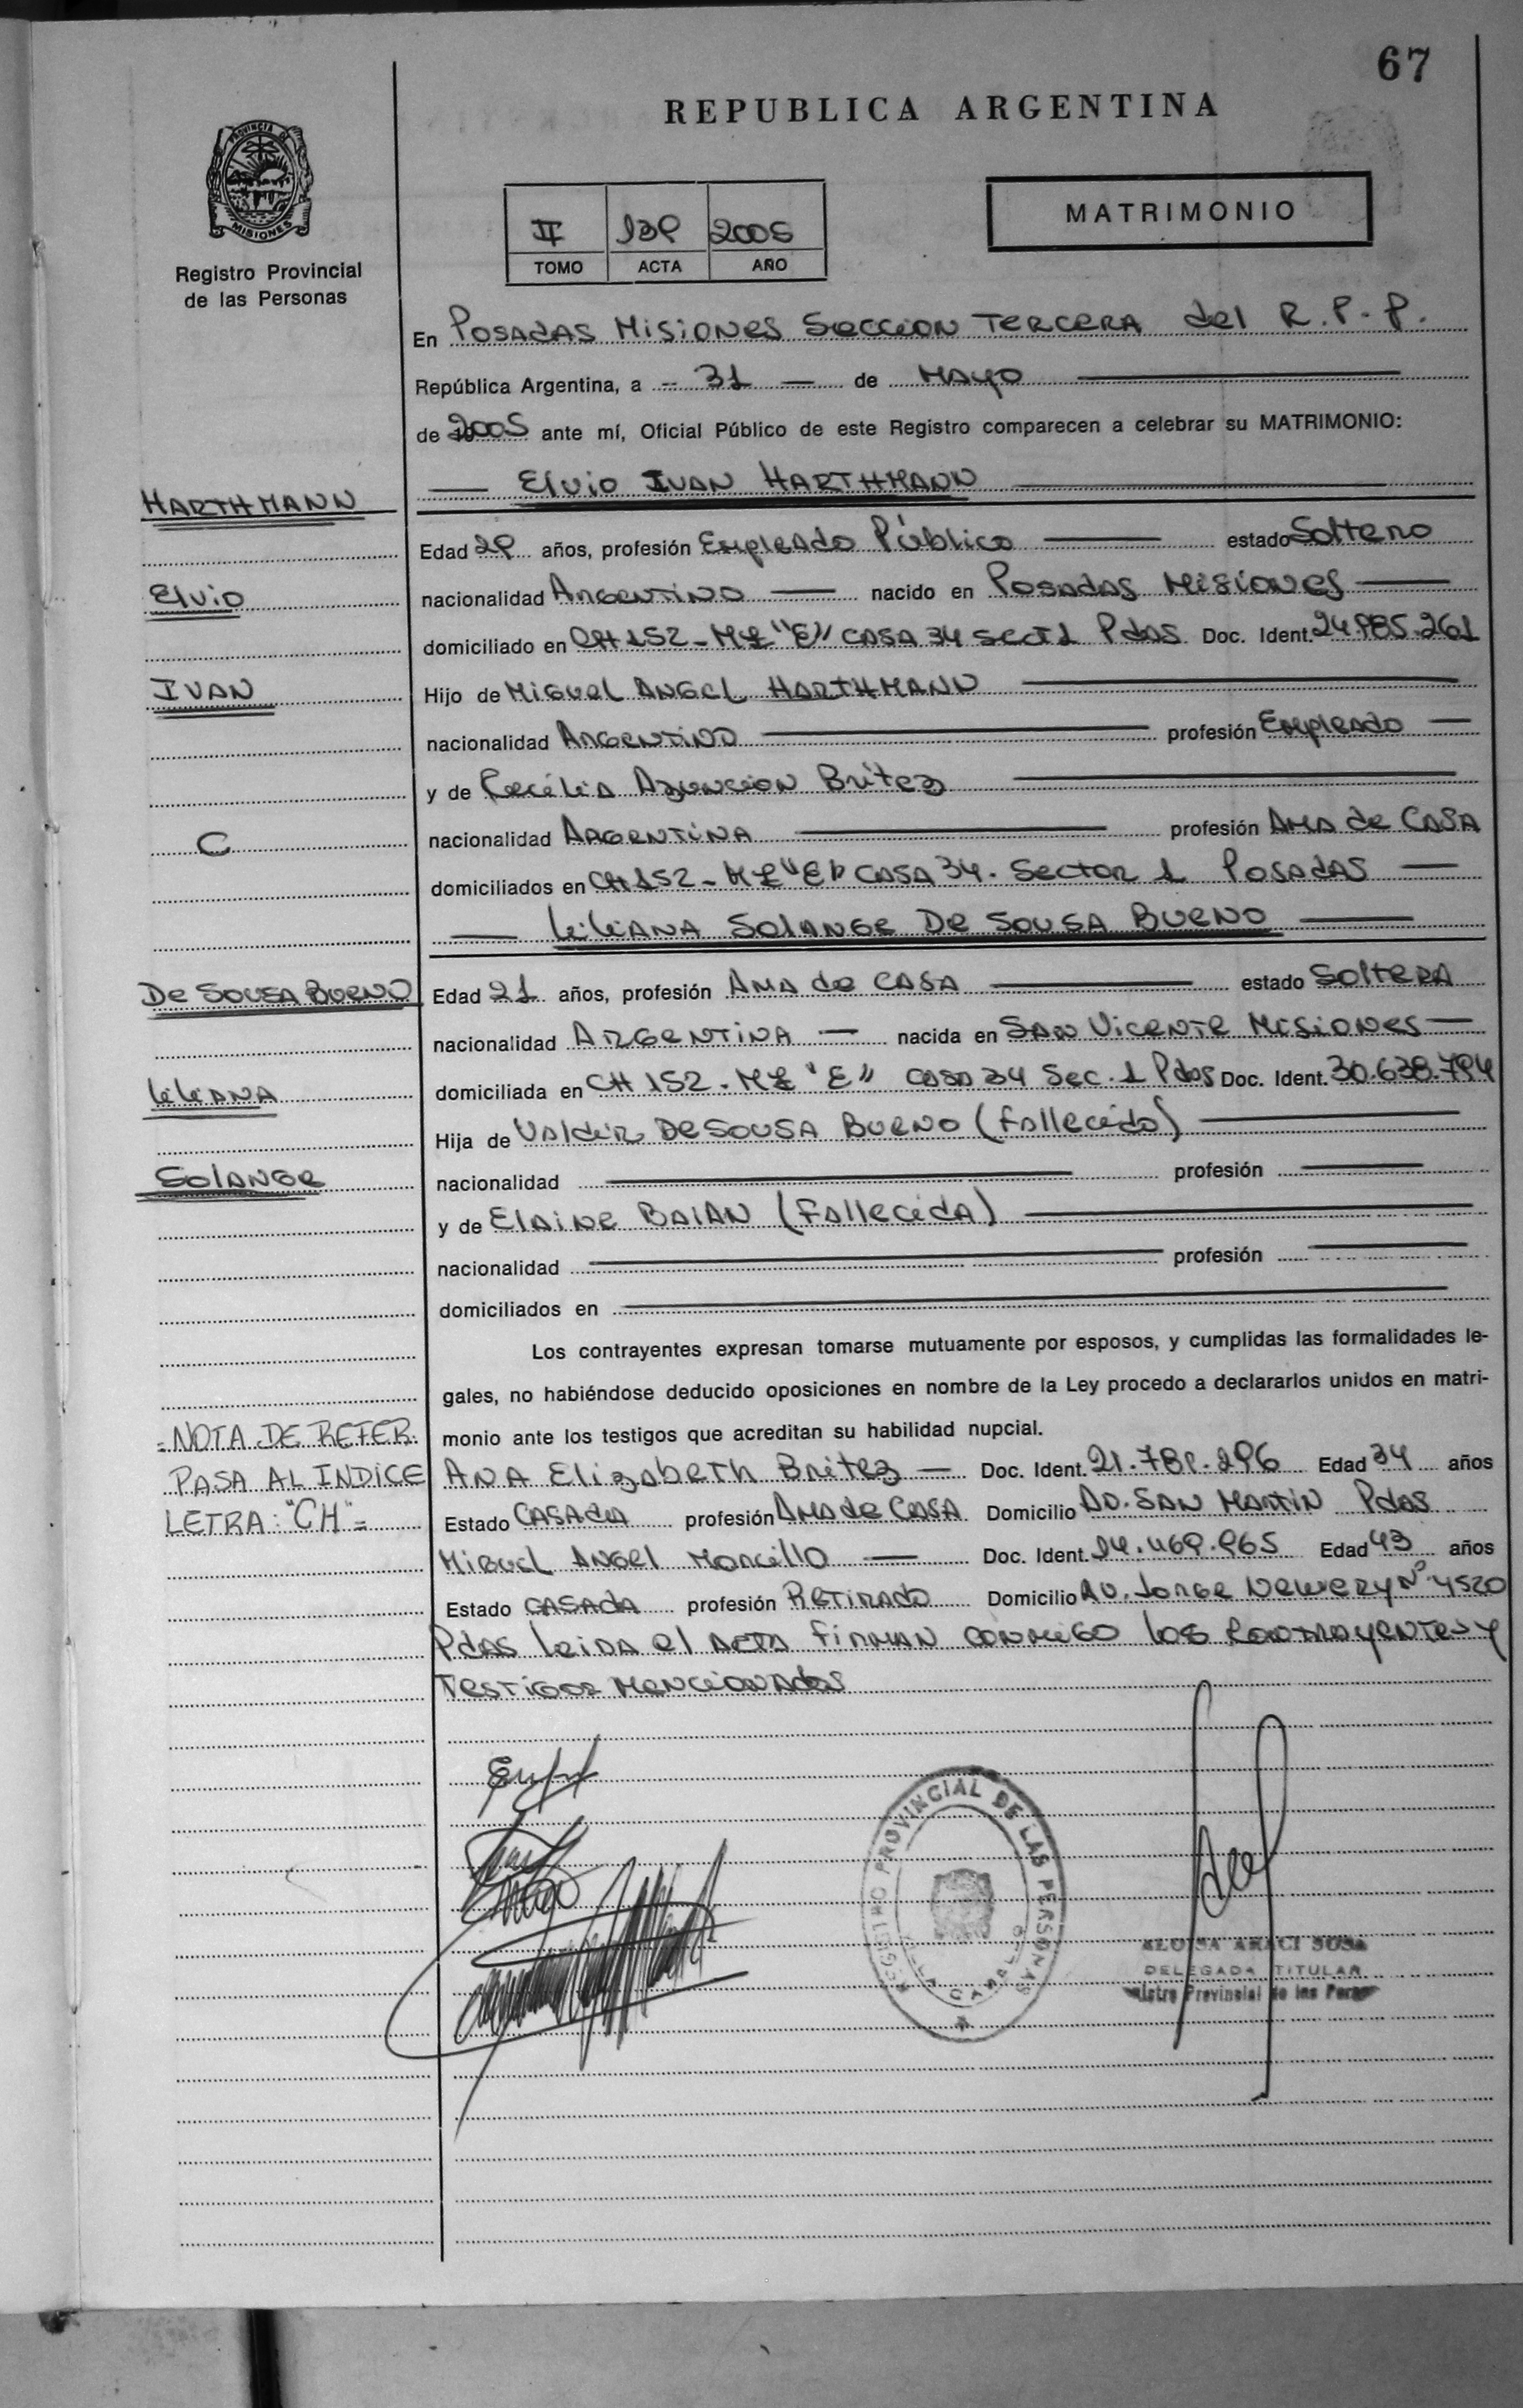 67
REPUBLICA ARGENTINA
PROVINCIA DE
MISIONES
Registro Provincial
de las Personas
MATRIMONIO
II 139 2005
TOMO ACTA AÑO
En Posadas Misiones Seccion Tercera del R.P.P.
República Argentina, a 31 de Mayo
de 2005 ante mí, Oficial Público de este Registro comparecen a celebrar su MATRIMONIO:
Elvio Ivan HARTHMANN
HARTHMANN
Edad 29 años, profesión Empleado Público estado Soltero
Elvio
nacionalidad Argentino nacido en Posadas Misiones
domiciliado en CH 152 - MZ "E" CASA 34 Sect 1 Pdas Doc. Ident. 24.985.261
IVAN
Hijo de Miguel Angel HARTHMANN
nacionalidad Argentino profesión Empleado
y de Cecilia Azuncion Britez
C
nacionalidad Argentina profesión Ama de Casa
domiciliados en CH 152 - MZ "E" CASA 34. Sector 1 Posadas
Liliana Solange De Sousa Bueno
De Sousa Bueno
Edad 21 años, profesión Ama de Casa estado Soltera
nacionalidad Argentina nacida en San Vicente Misiones
Liliana
domiciliada en CH 152 - MZ "E" Casa 34 Sec. 1 Pdas Doc. Ident. 30.638.794
Hija de Valdir De Sousa Bueno (Fallecido)
Solange
nacionalidad profesión
y de Elaine Baian (Fallecida)
nacionalidad profesión
domiciliados en
Los contrayentes expresan tomarse mutuamente por esposos, y cumplidas las formalidades le-
gales, no habiéndose deducido oposiciones en nombre de la Ley procedo a declararlos unidos en matri-
monio ante los testigos que acreditan su habilidad nupcial.
=NOTA DE REFER.
PASA AL INDICE
LETRA: "CH"=
Ana Elizabeth Britez Doc. Ident. 21.789.296 Edad 34 años
Estado Casada profesión Ama de Casa Domicilio Av. San Martin Pdas
Miguel Angel Morcillo Doc. Ident. 14.469.965 Edad 43 años
Estado Casada profesión Retirado Domicilio Av. Jorge Newery Nº 4520
Pdas leida el acta firman conmigo los contrayentes y
testigos mencionados
REGISTRO PROVINCIAL DE LAS PERSONAS
ARACI SOSA
DELEGADA TITULAR
Provincial de las